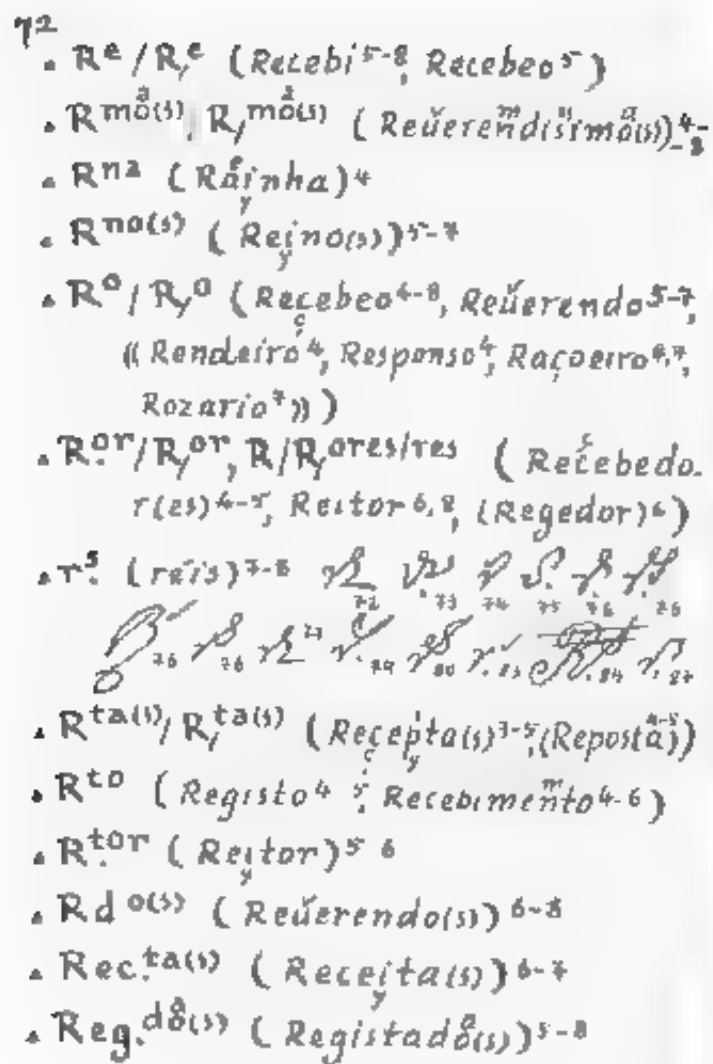 72
. Rᵉ / R,ᵉ (Recebi⁵⁻⁸, Recebeo⁵)
. Rmo(s), R,mo(s) (Reverendissimo(s))⁴⁻⁸
. Rna (Rainha)⁴
. Rno(s) (Reino(s))⁵⁻⁷
. Rᵒ / R,ᵒ (Recebeo⁴⁻⁸, Reverendo⁵⁻⁷,
(( Rendeiro⁴, Responso⁴, Raçoeiro⁶,⁷,
Rozario⁷ )) )
. R.or / R,or, R/R,ores/res (Recebedo-
r(es)⁴⁻⁵, Reitor⁶,⁸, (Regedor)⁶)
. r.s (reis)⁷⁻⁸ 72 73 74 75 76 76
76 76 77 79 80 83 84 87
. Rta(s) / R,ta(s) (Recepta(s)³⁻⁵, (Reposta)⁴⁻⁵)
. Rto (Registo⁴ ⁵, Recebimento⁴⁻⁶)
. R.tor (Reitor)⁵ ⁶
. Rdo(s) (Reverendo(s))⁶⁻⁸
. Rec.ta(s) (Receita(s))⁶⁻⁷
. Reg.do(s) (Registado(s))⁵⁻⁸